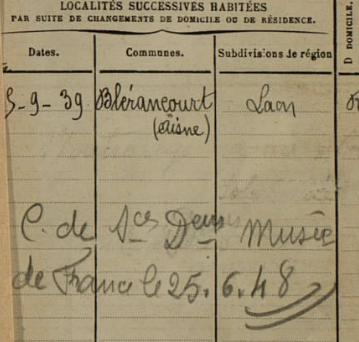 LOCALITÉS SUCCESSIVES HABITÉES
PAR SUITE DE CHANGEMENTS DE DOMICILE OU DE RÉSIDENCE.
Dates. Communes. Subdivisions de région
D DOMICILE.
5-9-39 Blérancourt Laon
(Aisne)
C. de Sces Dem Musée
de France le 25.6.48